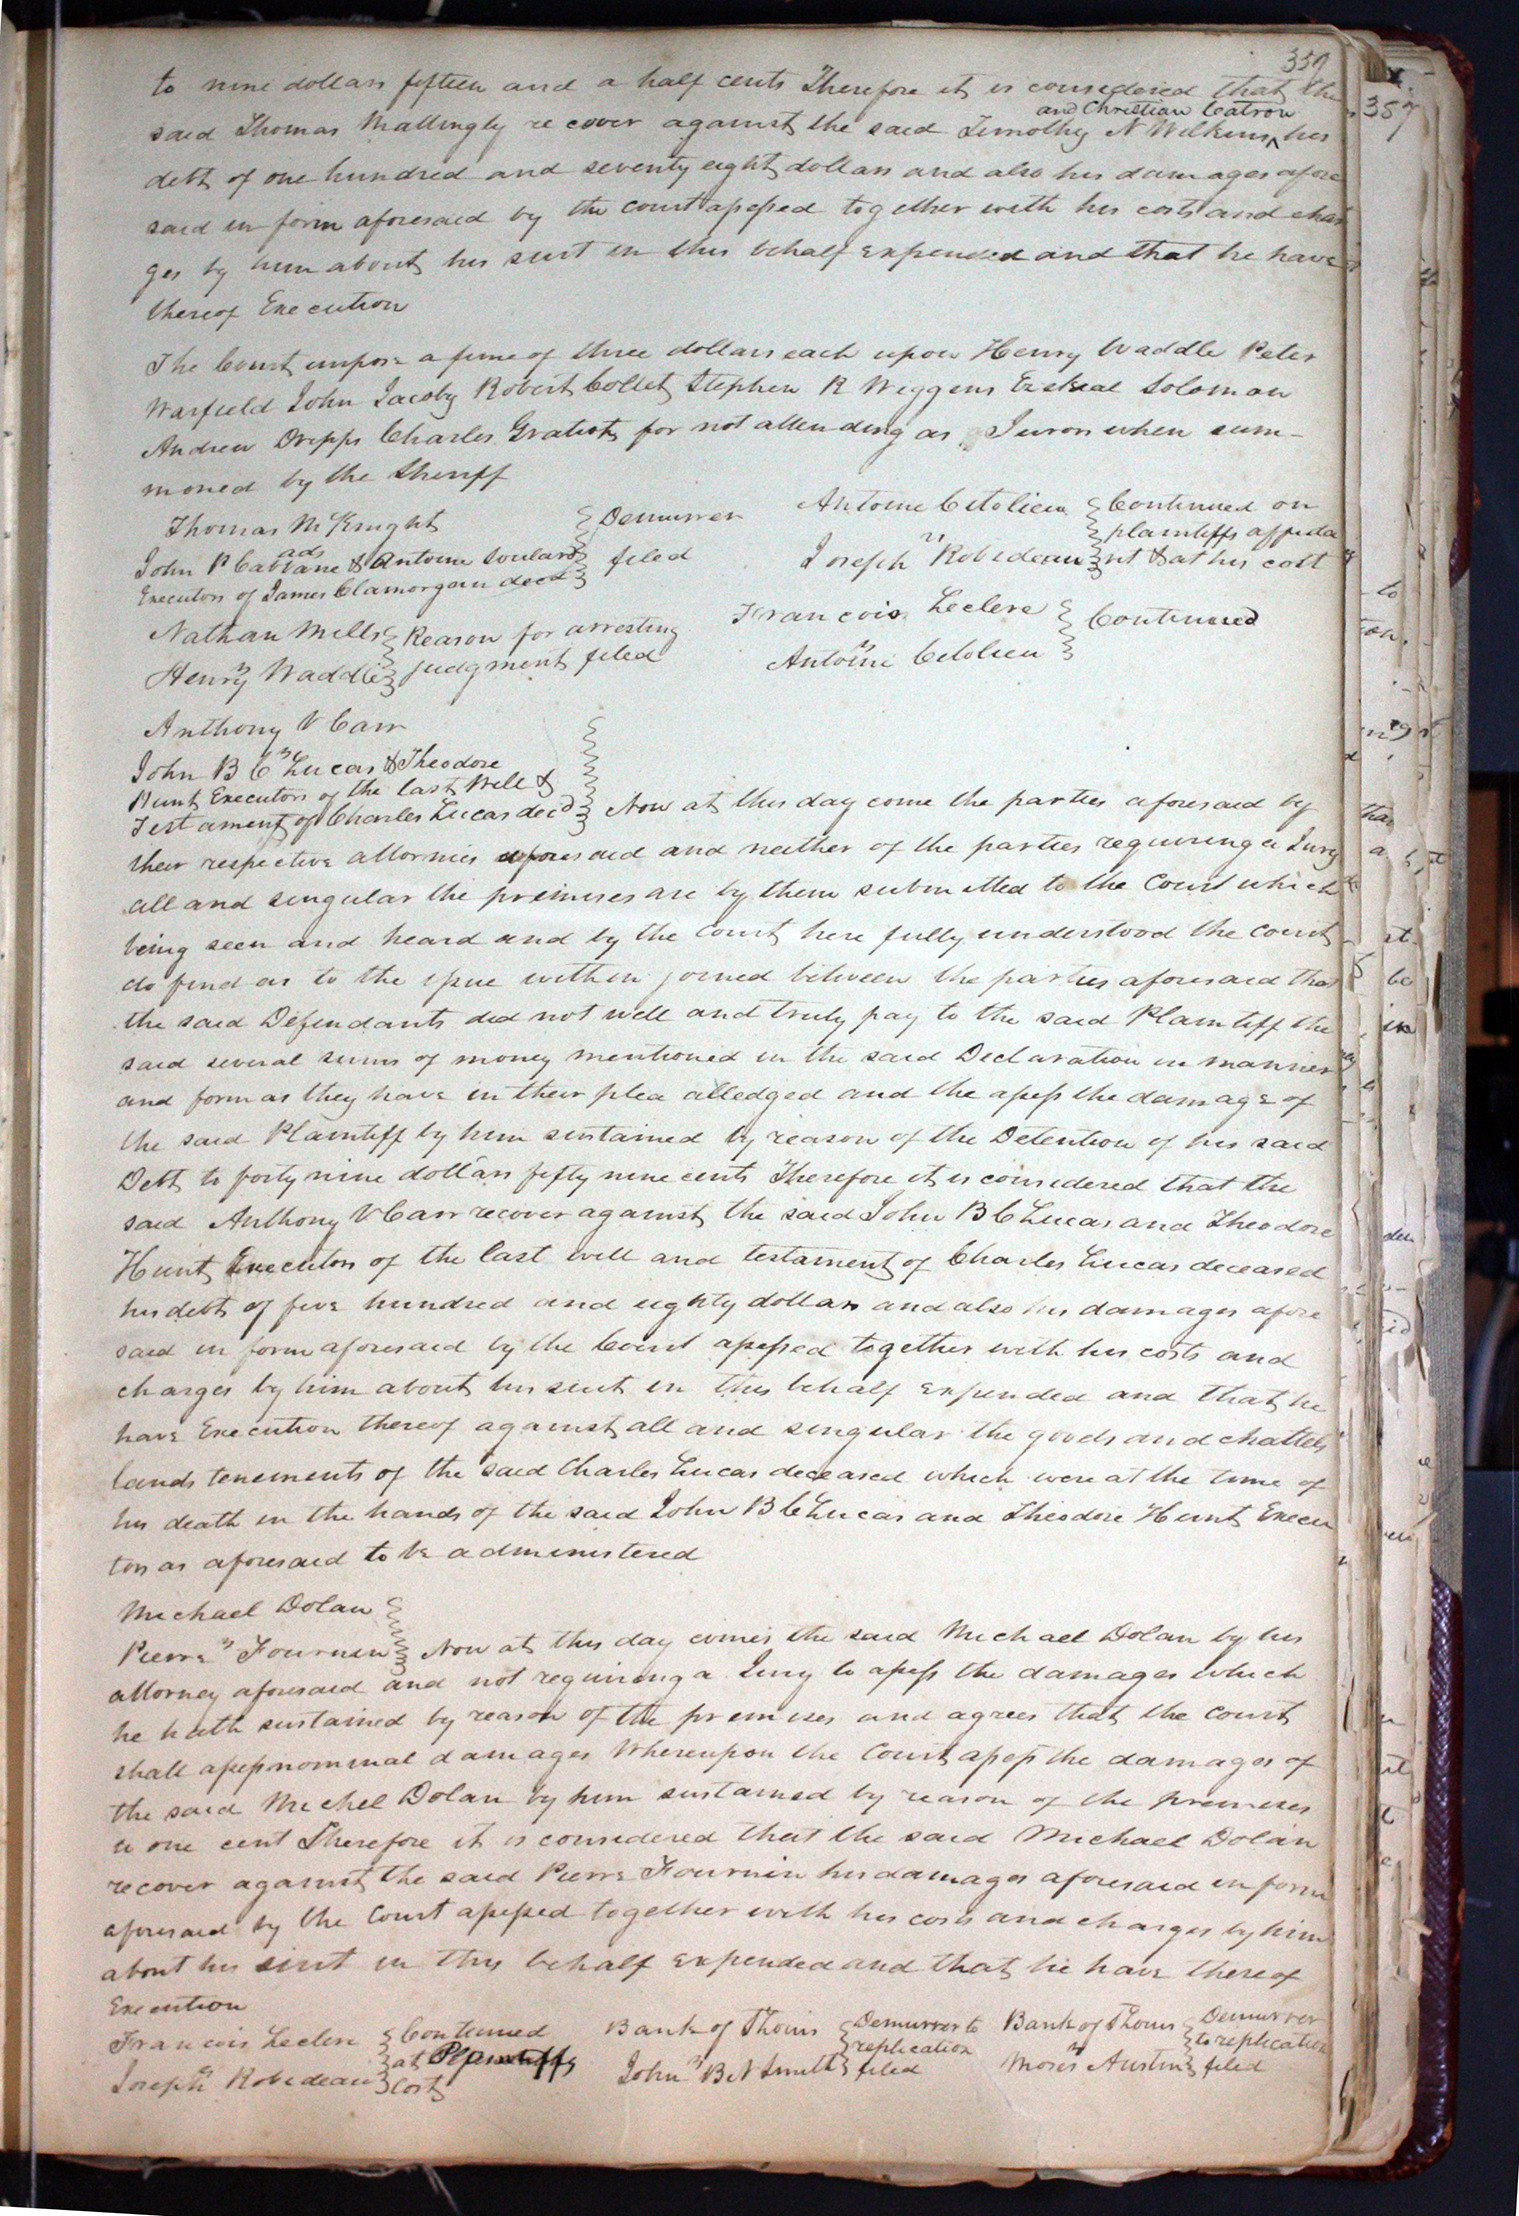 357
to nine dollars fifteen and a half cents Therefore it is considered that the
and Christian Catron
said Thomas Mattingly recover against the said Timothy N Wilkins ^ his
debt of one hundred and seventy eight dollars and also his damages afore
said in form aforesaid by the court assessed together with his costs and char
ges by him about his suit in this behalf expended and that he have
thereof Execution
The Court impose a fine of three dollars each upon Henry Waddle Peter
Warfield John Jacoby Robert Collet Stephen R Wiggens Ezekeal Soloman
Andrew Dripps Charles Gratiot for not attending as Jurors when sum-
moned by the Sheriff
Thomas McKnight
ads
John P Cabbane & Antoine Soulard
Executors of James Clamorgan decd
Demurrer
filed
Antoine Citolieu
vs
Joseph Robedeau
Continued on
plaintiffs affida
vit & at his cost
Nathan Mills
vs
Henry Waddle
Reason for arresting
judgment filed
Francois Leclere
vs
Antoine Citolieu
Continued
Anthony V Carr
vs
John B C Lucas & Theodore
Hunt Executors of the last Will &
Testament of Charles Lucas decd Now at this day come the parties aforesaid by
their respective attornies aforesaid and neither of the parties requiring a Jury
all and singular the premises are by them submitted to the Court which
being seen and heard and by the Court here fully understood the court
do find as to the issue within joined between the parties aforesaid that
the said Defendants did not well and truly pay to the said Plaintiff the
said several sums of money mentioned in the said Declaration in manner
and form as they have in their plea alledged and the assess the damage of
the said Plaintiff by him sustained by reason of the Detention of his said
Debt to forty nine dollars fifty nine cents Therefore it is considered that the
said Anthony V Carr recover against the said John B C Lucas and Theodore
Hunt Executors of the last will and testament of Charles Lucas deceased
his debt of five hundred and eighty dollars and also his damages afore
said in form aforesaid by the Court assessed together with his costs and
charges by him about his suit in this behalf expended and that he
have Execution thereof against all and singular the goods and chattels
lands tenements of the said Charles Lucas deceased which were at the time of
his death in the hands of the said John B C Lucas and Theodore Hunt Execu
tors as aforesaid to be administered
Michael Dolan
vs
Pierre Fournin Now at this day comes the said Michael Dolan by his
attorney aforesaid and not requiring a Jury to assess the damages which
he hath sustained by reason of the premises and agrees that the Court
shall assess nominal damages Whereupon the Court assess the damages of
the said Michel Dolan by him sustained by reason of the premises
to one cent Therefore it is considered that the said Michael Dolan
recover against the said Pierre Fournin his damages aforesaid in form
aforesaid by the Court assessed together with his costs and charges by him
about his suit in this behalf expended and that he have thereof
Execution
Francois Leclere
vs
Joseph Robedeau
Continued
at Plaintiffs
Cost
Bank of St Louis
vs
John B N Smith
Demurrer to
replication
filed
Bank of St Louis
vs
Moses Austin
Demurrer
to replication
filed
357